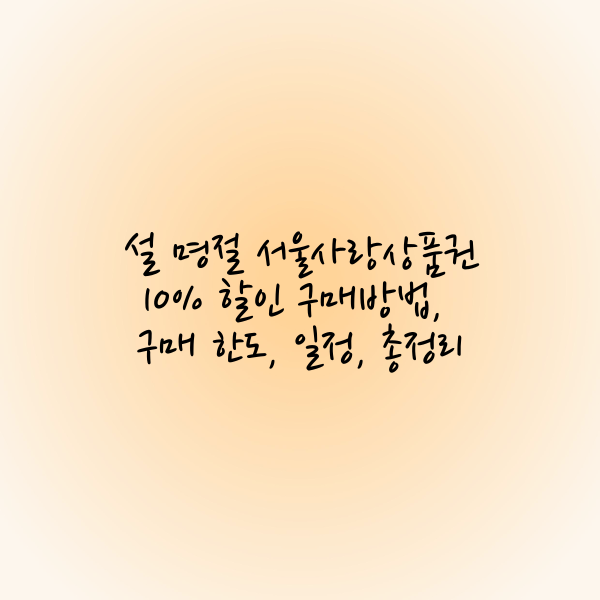 설 명절 서울사랑상품권
10% 할인 구매방법,
구매 한도, 일정, 총정리